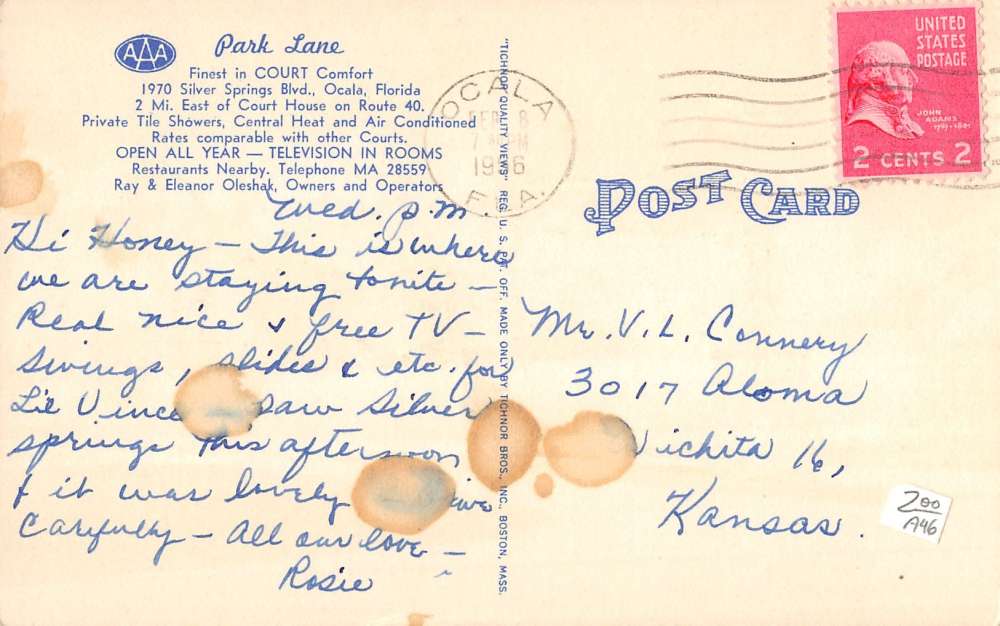 AAA
Park Lane
Finest in COURT Comfort
1970 Silver Springs Blvd., Ocala, Florida
2 Mi. East of Court House on Route 40.
Private Tile Showers, Central Heat and Air Conditioned
Rates comparable with other Courts.
OPEN ALL YEAR — TELEVISION IN ROOMS
Restaurants Nearby. Telephone MA 28559
Ray & Eleanor Oleshak, Owners and Operators
Wed. p.m
Hi Honey — This is where
we are staying tonite —
Real nice & free TV —
Swings, slides & etc. for
Lil Vince saw Silver
springs this afternoon
& it was lovely
Carefully — All our love —
Rosie
"TICHNOR QUALITY VIEWS" REG. U. S. PAT. OFF. MADE ONLY BY TICHNOR BROS., INC., BOSTON, MASS.
OCALA
FEB 8
1956
FLA.
UNITED
STATES
POSTAGE
JOHN
ADAMS
1797-1801
2 CENTS 2
POST CARD
Mr. V. L. Connery
3017 Aloma
Wichita 16,
Kansas.
2 00
A46